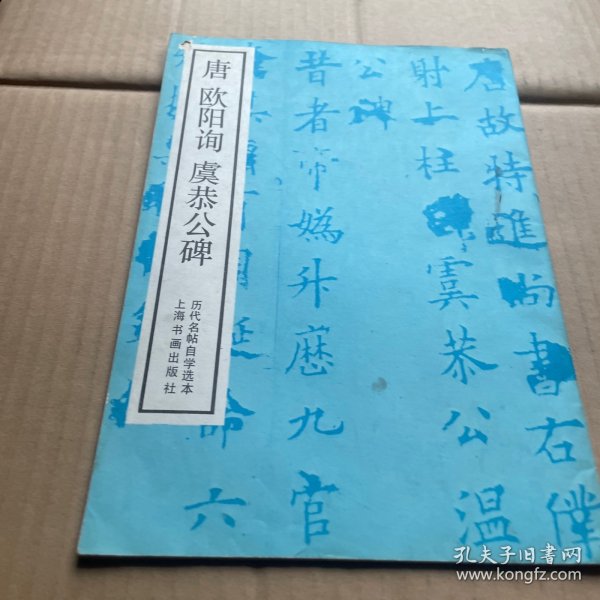 唐 欧阳询 虞恭公碑
历代名帖自学选本
上海书画出版社
唐故特進尚書右僕
射上柱 虞恭公温
公碑
昔者帝嬀升歷九官
命六
孔夫子旧书网
www.kongfz.com